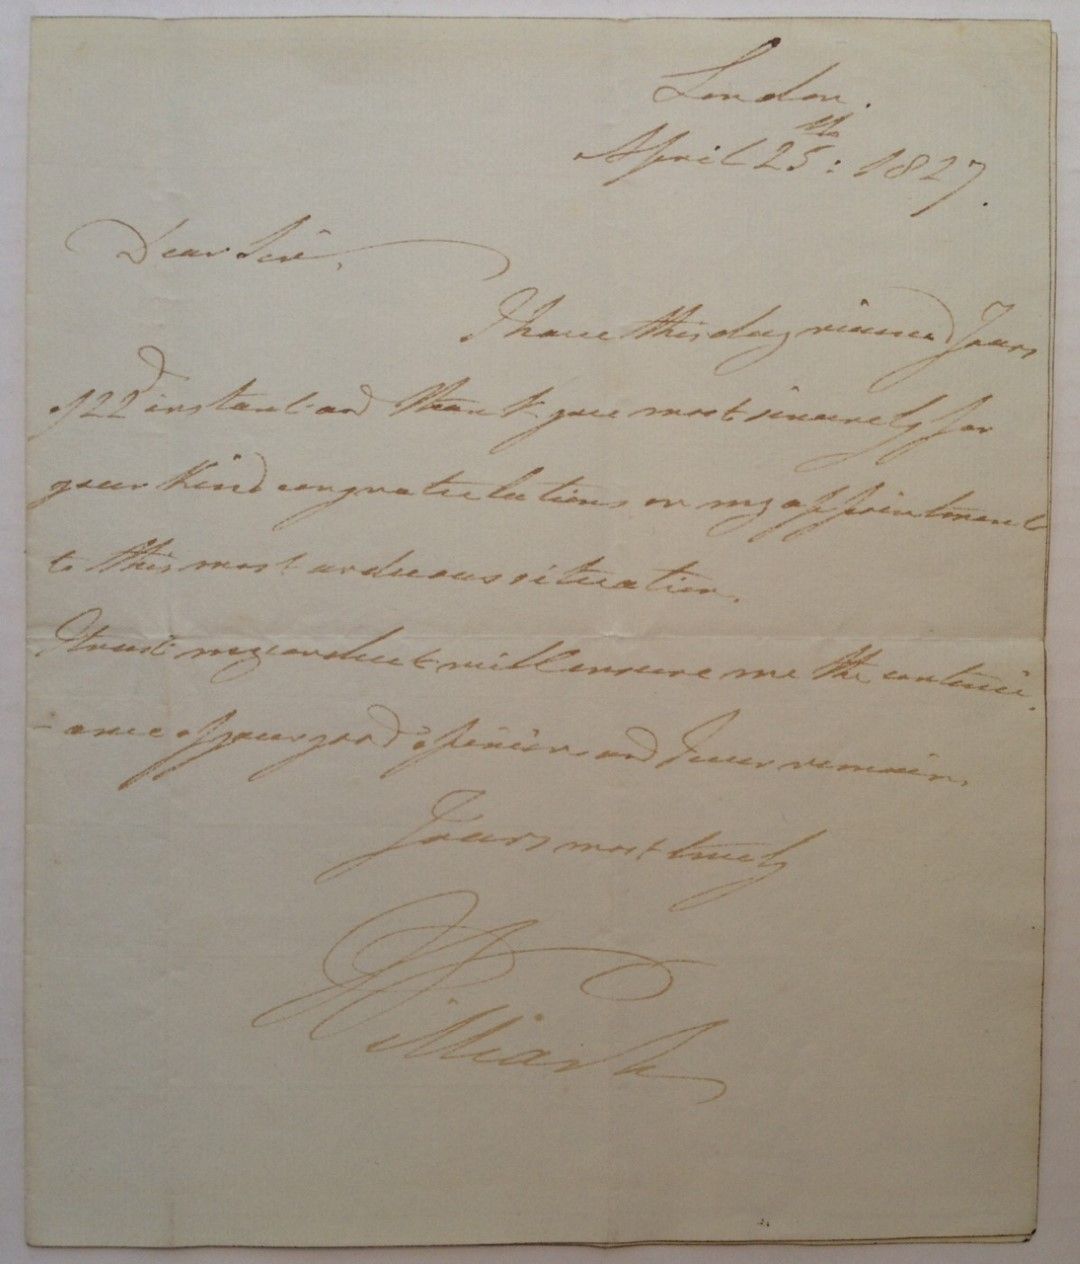 London.
April 25th: 1827.
Dear Sir,
I have this day received Yours
of 22d instant and thank you most sincerely for
your kind congratulations on my appointment
to this most arduous situation.
I trust my conduct will ensure me the continu
-ance of your good opinion and I ever remain,
Yours most truly
William